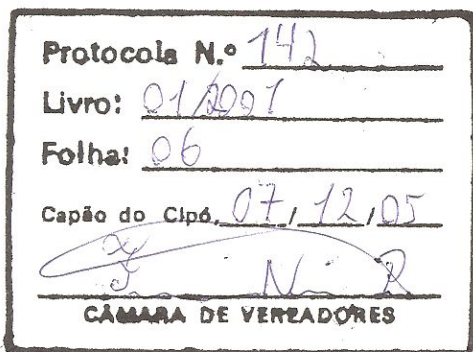 Protocolo N.º 142
Livro: 01/2001
Folha: 06
Capão do Cipó, 07, 12, 05
CÂMARA DE VEREADORES